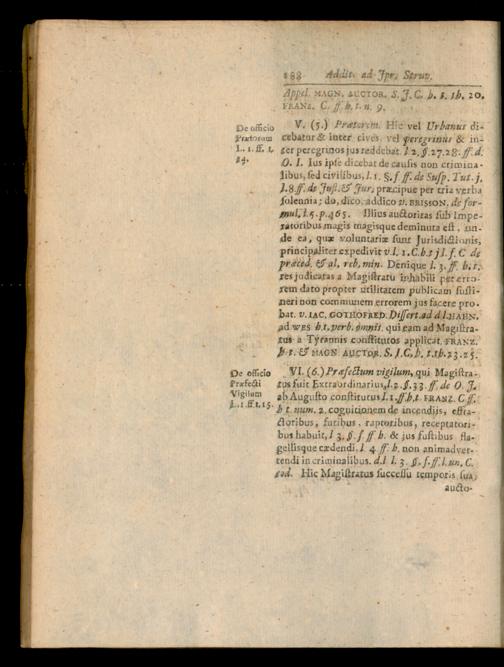 188 Addit. ad Jpr. Struv.
Appel. MAGN. AUCTOR. S. J. C. h. t. th. 20.
FRANZ. C. ff. h. t. n. 9.
De officio
Prætorum
L. 1. ff. t.
14.
V. (5.) Prætorem. Hic vel Urbanus di-
cebatur & inter cives, vel peregrinus & in-
ter peregrinos jus reddebat. l 2. §. 27. 28. ff. d.
O. I. Ius ipse dicebat de causis non crimina-
libus, sed civilibus, l. 1. §. f ff. de Susp. Tut. j.
l. 8. ff. de Just. & Jur. præcipue per tria verba
solennia; do, dico, addico v. BRISSON. de for-
mul. l. 5. p. 465. Illius auctoritas sub Impe-
ratoribus magis magisque deminuta est, un-
de ea, quæ voluntariæ sunt Jurisdictionis,
principaliter expedivit v. l. 1. C. h. t j. l. f. C de
præced. & al. reb. min. Denique l. 3. ff. h. t.
res judicatas a Magistratu inhabili per erro-
rem dato propter utilitatem publicam susti-
neri non communem errorem jus facere pro-
bat. v. IAC. GOTHOFRED. Dissert. ad d l. HAHN.
ad WES h. t. verb. omnis. qui eam ad Magistra-
tus a Tyrannis constitutos applicat. FRANZ.
h t. & MAGN AUCTOR. S. J. C. h. t. th. 23. 25.
De officio
Præfecti
Vigilum
L. 1. ff. t. 15.
VI. (6.) Præfectum vigilum, qui Magistra-
tus fuit Extraordinarius, l. 2. §. 33. ff. de O. J.
ab Augusto constitutus l. 1. ff h. t. FRANZ. C ff.
h t. num. 2. cognitionem de incendijs, effra-
ctoribus, furibus, raptoribus, receptatori-
bus habuit, l 3. §. f ff h. & jus fustibus fla-
gellisque cædendi. l 4. ff h. non animadver-
tendi in criminalibus. d. l l. 3. §. f. ff. l. un. C.
eod. Hic Magistratus successu temporis sua
aucto-